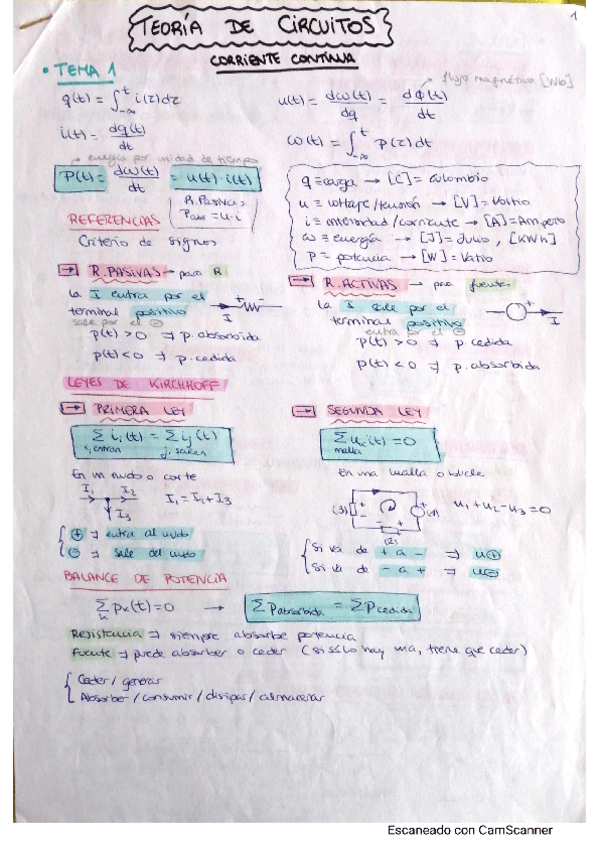 1
TEORÍA DE CIRCUITOS
CORRIENTE CONTINUA
• TEMA 1
→ flujo magnético [Wb]
q(t) = ∫_{-∞}^{t} i(τ)dτ
u(t) = dω(t)/dq = dΦ(t)/dt
i(t) = dq(t)/dt
ω(t) = ∫_{-∞}^{t} p(τ)dt
→ energía por unidad de tiempo
P(t) = dω(t)/dt = u(t)·i(t)
R.Pasivas
Pabs = u·i
q ≡ carga → [C] = Culombio
u ≡ voltaje/tensión → [V] = Voltio
i ≡ intensidad/corriente → [A] = Amperio
ω ≡ energía → [J] = Julio, [KWh]
P = potencia → [W] = Vatio
REFERENCIAS
Criterio de signos
→ R.PASIVAS → para R
La I entra por el
terminal positivo
sale por el ⊖
+
I
p(t) > 0 ⇒ p. absorbida
p(t) < 0 ⇒ p. cedida
→ R.ACTIVAS → para fuentes
La I sale por el
terminal positivo
entra por el ⊖
+
I
p(t) > 0 ⇒ p. cedida
p(t) < 0 ⇒ p. absorbida
LEYES DE KIRCHHOFF
→ PRIMERA LEY
∑ i_i(t) = ∑ i_j(t)
i, entran j, salen
En un nudo o corte
I1 I2
I3
I1 = I2 + I3
⊕ ⇒ entra al nudo
⊖ ⇒ sale del nudo
→ SEGUNDA LEY
∑ u_k(t) = 0
malla
En una malla o bucle
(3) (1)
(2)
u1 + u2 - u3 = 0
Si va de + a - ⇒ u⊕
Si va de - a + ⇒ u⊖
BALANCE DE POTENCIA
∑ p_k(t) = 0 → ∑ Pabsorbida = ∑ Pcedida
k
Resistencia ⇒ siempre absorbe potencia
Fuente ⇒ puede absorber o ceder (si sólo hay una, tiene que ceder)
Ceder / generar
Absorber / consumir / disipar / almacenar
Escaneado con CamScanner